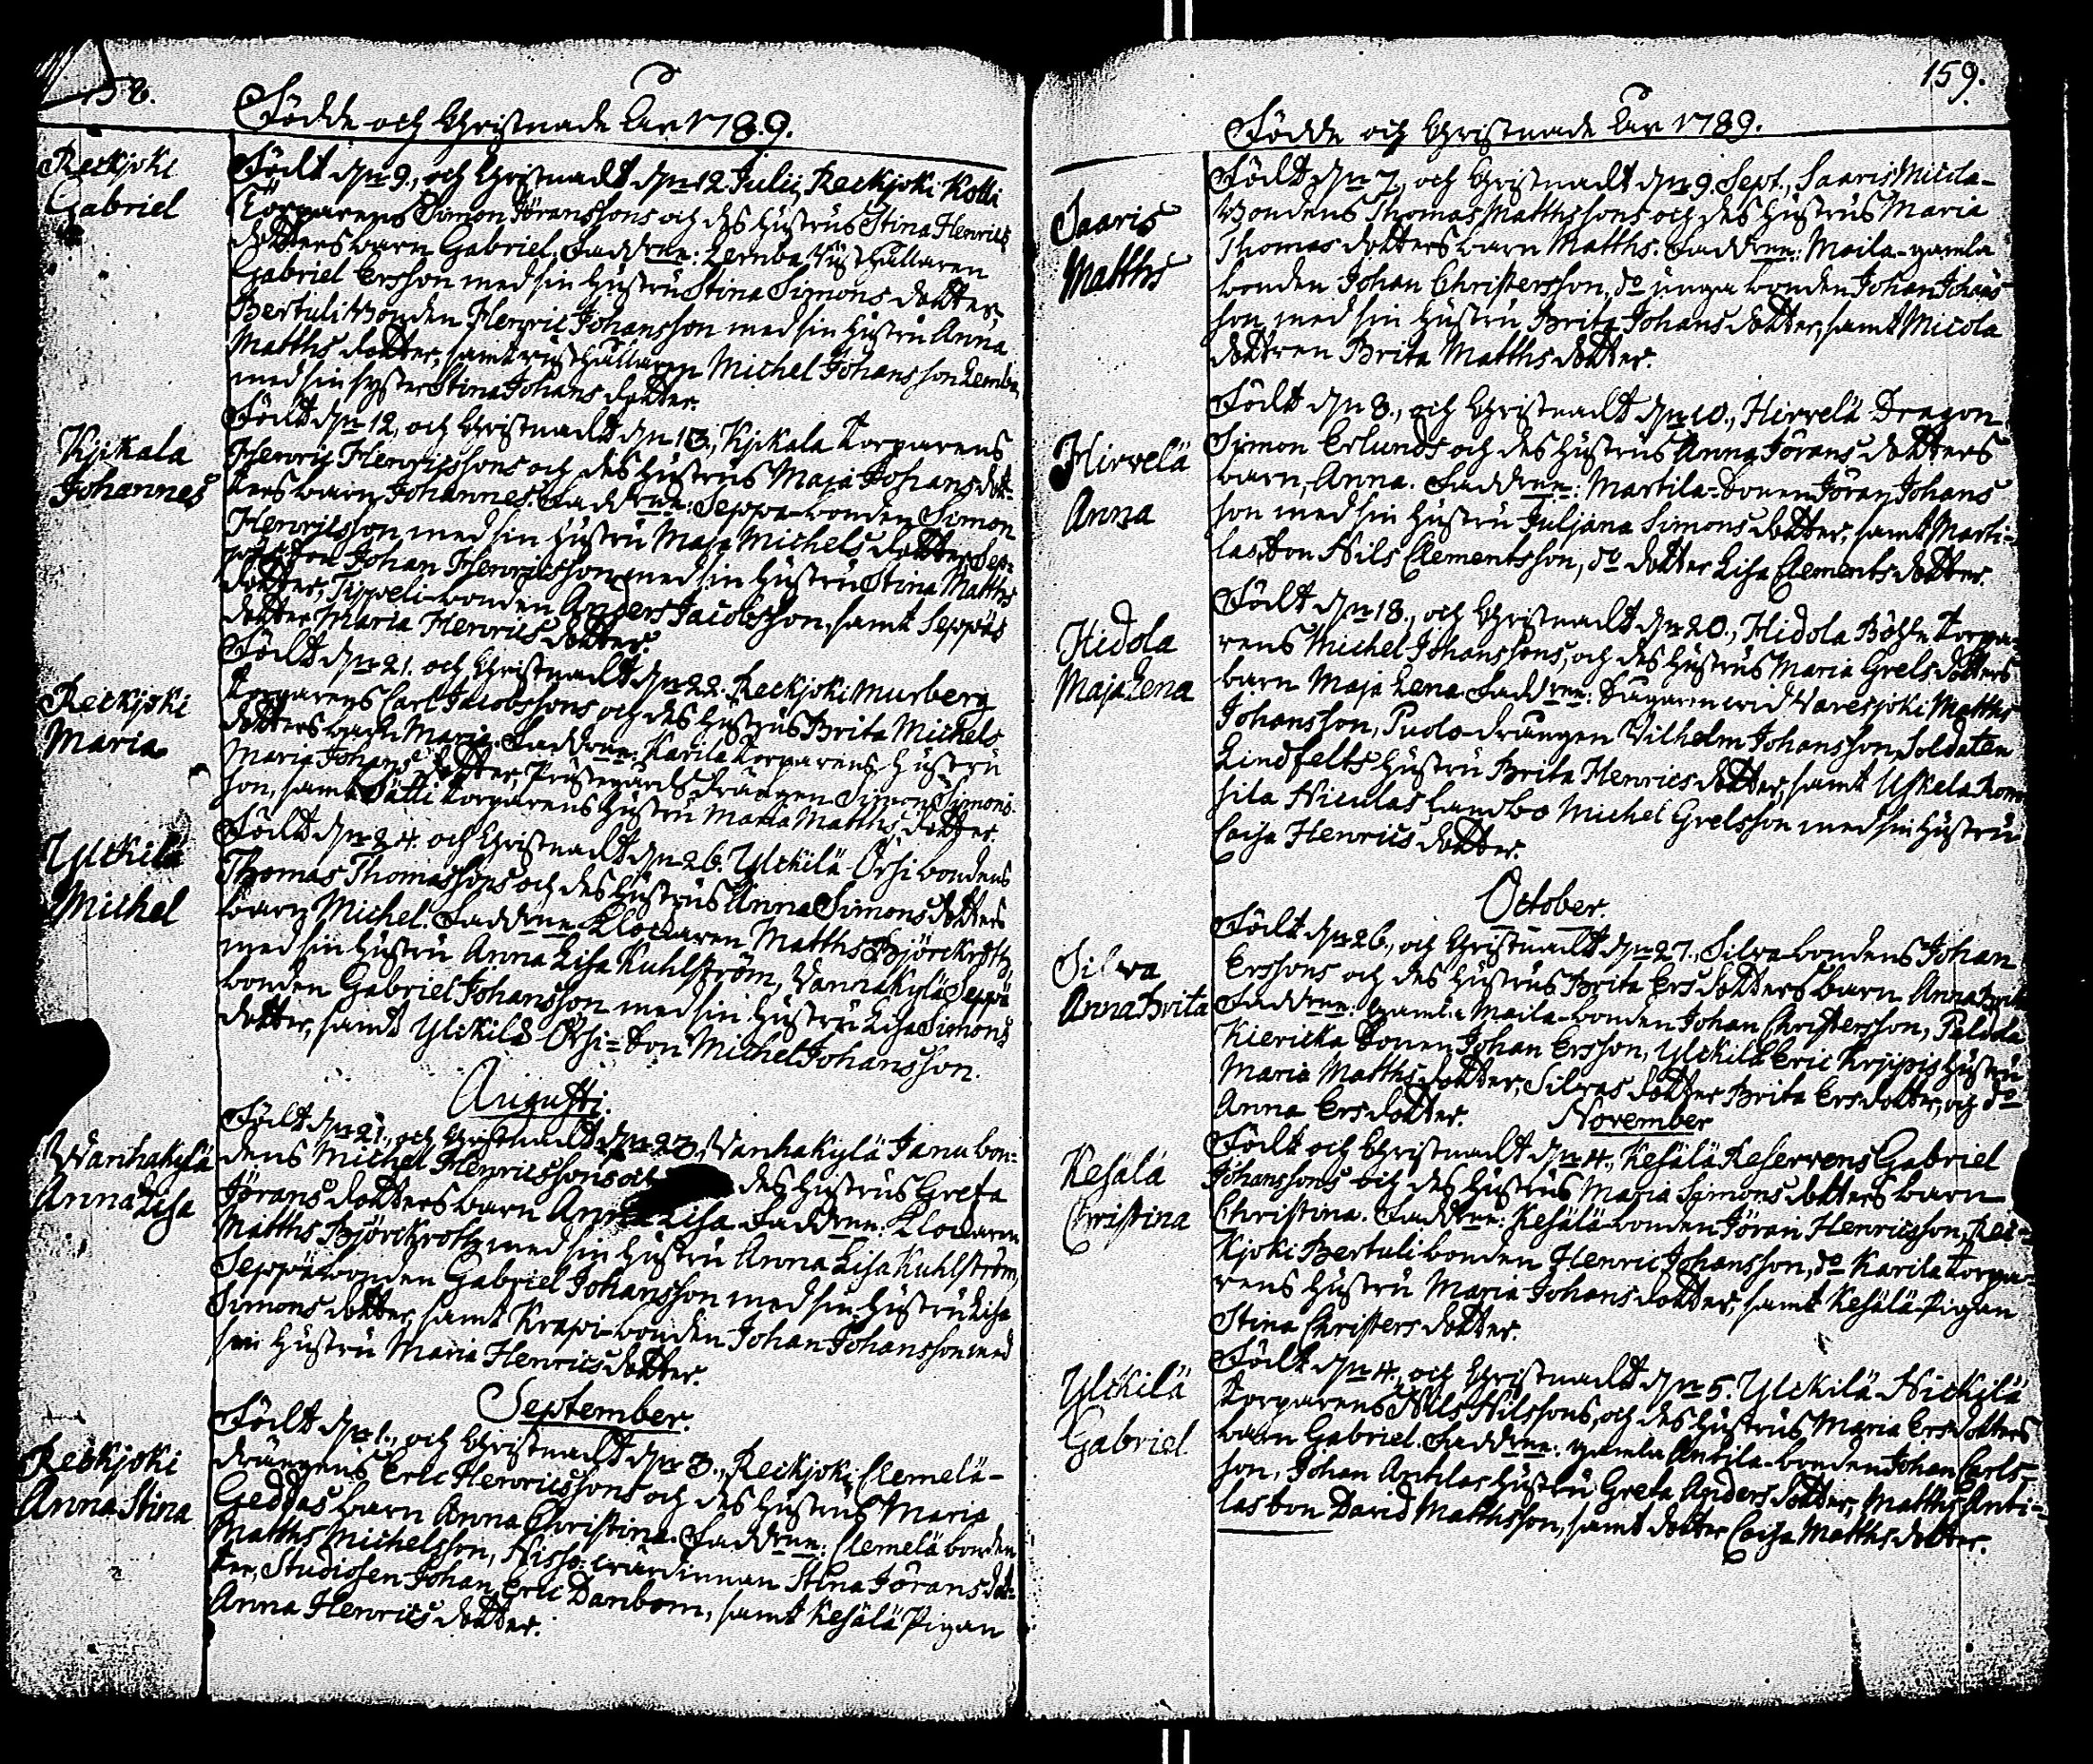 158.
Födde och Christnade Åhr 1789.
Reckjoki
Gabriel
Födt den 9., och Christnadt den 12 Julii, Reckjoki Kotti
Torparens Simon Jöranssons och des hustrus Stina Henrics
dotters barn Gabriel. Faddrne: Lemba Rusthållaren
Gabriel Ersson med sin hustru Stina Simons dotter,
Bertuli Bonden Henric Johansson med sin hustru Anna
Matths dotter, samt rusthållaren Michel Johansson Lemba
med sin syster Stina Johans dotter.
Kjikala
Johannes
Födt den 12, och Christnadt den 13., Kjikala Torparens
Henric Henricssons och des hustrus Maja Johans dot=
ters barn Johannes. Faddrne: Seppä-bonden Simon
Henricsson med sin hustru Maja Michels dotter, Sep=
Johan Henricsson med sin hustru Stina Matths
dotter, Typpeli-bonden Anders Jacobsson, samt Seppäs
dotter Maria Henrics dotter.
Reckjoki
Maria
Födt den 21. och Christnadt den 22. Reckjoki Murberg
torparens Carl Jacobssons och des hustrus Brita Michels
dotters barn Maria. Faddrne: Karila torparens hustru
Maria Johans dotter, Prästegårds drängen Simon Simons
son, samt Sätti torparens hustru Maria Matths dotter.
Ylckilä
Michel
Födt den 24. och Christnadt den 26. Ylckilä Orhi bondens
Thomas Thomassons och des hustrus Anna Simons dotters
barn Michel. Faddrne: Klockaren Matths Björckroth
med sin hustru Anna Lisa Kuhlström, Vannakylä Seppä
bonden Gabriel Johansson med sin hustru Lisa Simons
dotter, samt Ylckilä Orhi=son Michel Johansson.
Augusti.
Wanhakylä
Anna Lisa
Födt den 21., och Christnadt den 23., Wanhakylä Janu bon=
dens Michel Henricssons och des hustrus Greta
Jörans dotters barn Anna Lisa. Faddrne: Klockaren
Matths Björckroth med sin hustru Anna Lisa Kuhlström,
Seppä bonden Gabriel Johansson med sin hustru Lisa
Simons dotter, samt Krapi-bonden Johan Johansson med
sin hustru Maria Henrics dotter.
September.
Reckjoki
Anna Stina
Födt den 1., och Christnadt den 3., Reckjoki Clemelä-
drängens Eric Henricssons och des hustrus Maria
Geddas barn Anna Christina. Faddrne: Clemelä bonden
Matths Michelsson, Hissa-wärdinnan Stina Jörans dot=
ter, Studiosen Johan Eric Danbom, samt Kesälä Pigan
Anna Henrics dotter.
159.
Födde och Christnade Åhr 1789.
Saaris
Matths
Födt den 7., och Christnadt den 9. Sept., Saaris Micila-
Bondens Thomas Matthssons och des hustrus Maria
Thomas dotters barn Matths. Faddrne: Maila-gamla
bonden Johan Christersson, do unga bonden Johan Johans
son med sin hustru Brita Johans dotter, samt Micola
dottren Brita Matths dotter.
Hirvelä
Anna
Födt den 8., och Christnadt den 10., Hirvelä Dragon
Simon Erlunds och des hustrus Anna Jörans dotters
barn, Anna. Faddrne: Martila-sonen Jöran Johans
son med sin hustru Juljana Simons dotter, samt Marti=
las son Nils Clementsson, do dotter Lisa Clements dotter.
Hidola
Maja Lena
Födt den 18., och Christnadt den 20., Hidola Böhle Torpa-
rens Michel Johanssons, och des hustrus Maria Grels dotters
barn Maja Lena. Faddrne: Sågaren wid Waresjoki Matths
Johansson, Puolo-drängen Vilhelm Johansson, Soldaten
Lindfelts hustru Brita Henrics dotter, samt Uskela Kom
sila Niculas Landbo Michel Grelsson med sin hustru
Caisa Henrics dotter.
October.
Silva
Anna Brita
Födt den 26., och Christnadt den 27., Silva-bondens Johan
Erssons och des hustrus Brita Ers dotters barn Anna Brita
Faddrne: gamla Maila-bonden Johan Christersson, Palola
Kiericka sonen Johan Ersson, Ylckilä Eric Krjypis hustru
Maria Matths dotter, Silvas dotter Brita Ers dotter, och do
Anna Ers dotter.
November
Kesälä
Christina
Födt och Christnadt den 4., Kesälä Reservens Gabriel
Johanssons och des hustrus Maria Simons dotters barn
Christina. Faddrne: Kesälä-bonden Jöran Henricsson, Rec=
kjoki Bertuli bonden Henric Johansson, do Karila torpa=
rens hustru Maria Johans dotter, samt Kesälä-Pigan
Stina Christers dotter.
Ylckilä
Gabriel
Födt den 4., och Christnadt den 5. Ylckilä Nickilä
torparens Nils Nilssons, och des hustrus Maria Ers dotters
barn Gabriel. Faddrne: gamla Antila-bonden Johan Carls=
son, Johan Antilas hustru Greta Anders dotter, Matths Anti=
las son David Matthsson, samt dotter Caisa Matths dotter.